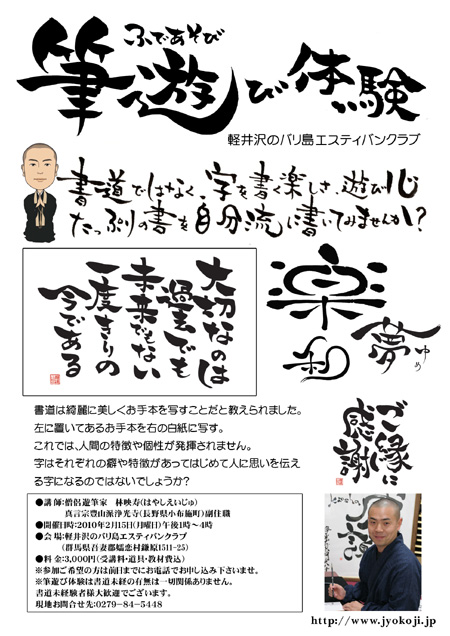 ふであそび
筆遊び体験
軽井沢のバリ島エスティバンクラブ
書道ではなく、字を書く楽しさ、遊び心
たっぷりの書を自分流に書いてみませんか!?
大切なのは
過去でも
未来でもない
一度きりの
今である
楽
和
夢
ゆめ
ご縁に
感謝
書道は綺麗に美しくお手本を写すことだと教えられました。
左に置いてあるお手本を右の白紙に写す。
これでは、人間の特徴や個性が発揮されません。
字はそれぞれの癖や特徴があってはじめて人に思いを伝え
る字になるのではないでしょうか?
●講師:僧侶遊筆家 林映寿(はやしえいじゅ)
真言宗豊山派浄光寺(長野県小布施町)副住職
●開催日時:2010年2月15日(月曜日)午後1時~4時
●会場:軽井沢のバリ島エスティバンクラブ
(群馬県吾妻郡嬬恋村鎌原1511-25)
●料金:3,000円(受講料・道具・教材費込)
※参加ご希望の方は前日までにお電話でお申し込み下さいませ。
※筆遊び体験は書道未経の有無は一切関係ありません。
書道未経験者様大歓迎でございます。
現地お問合せ先:0279-84-5448
http://www.jyokoji.jp